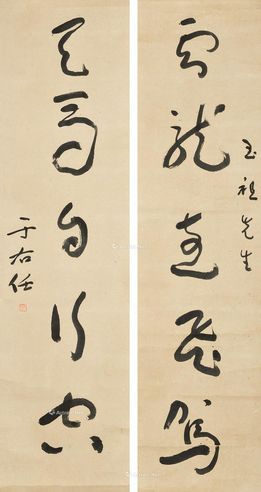 玉祖先生
雲龍遠飛駕
天馬自行空
于右任